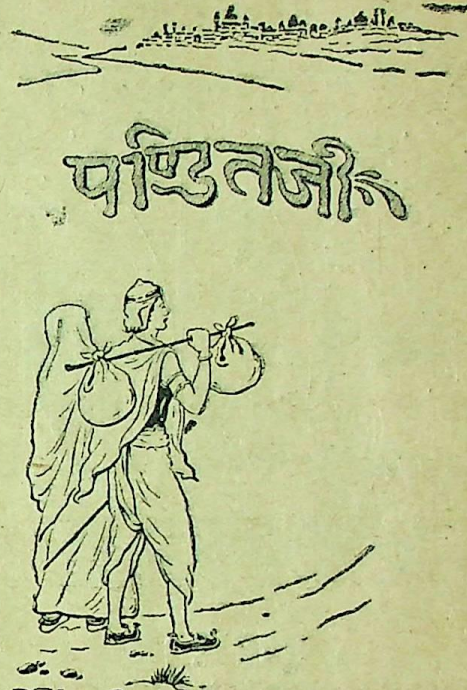 पण्डितजी